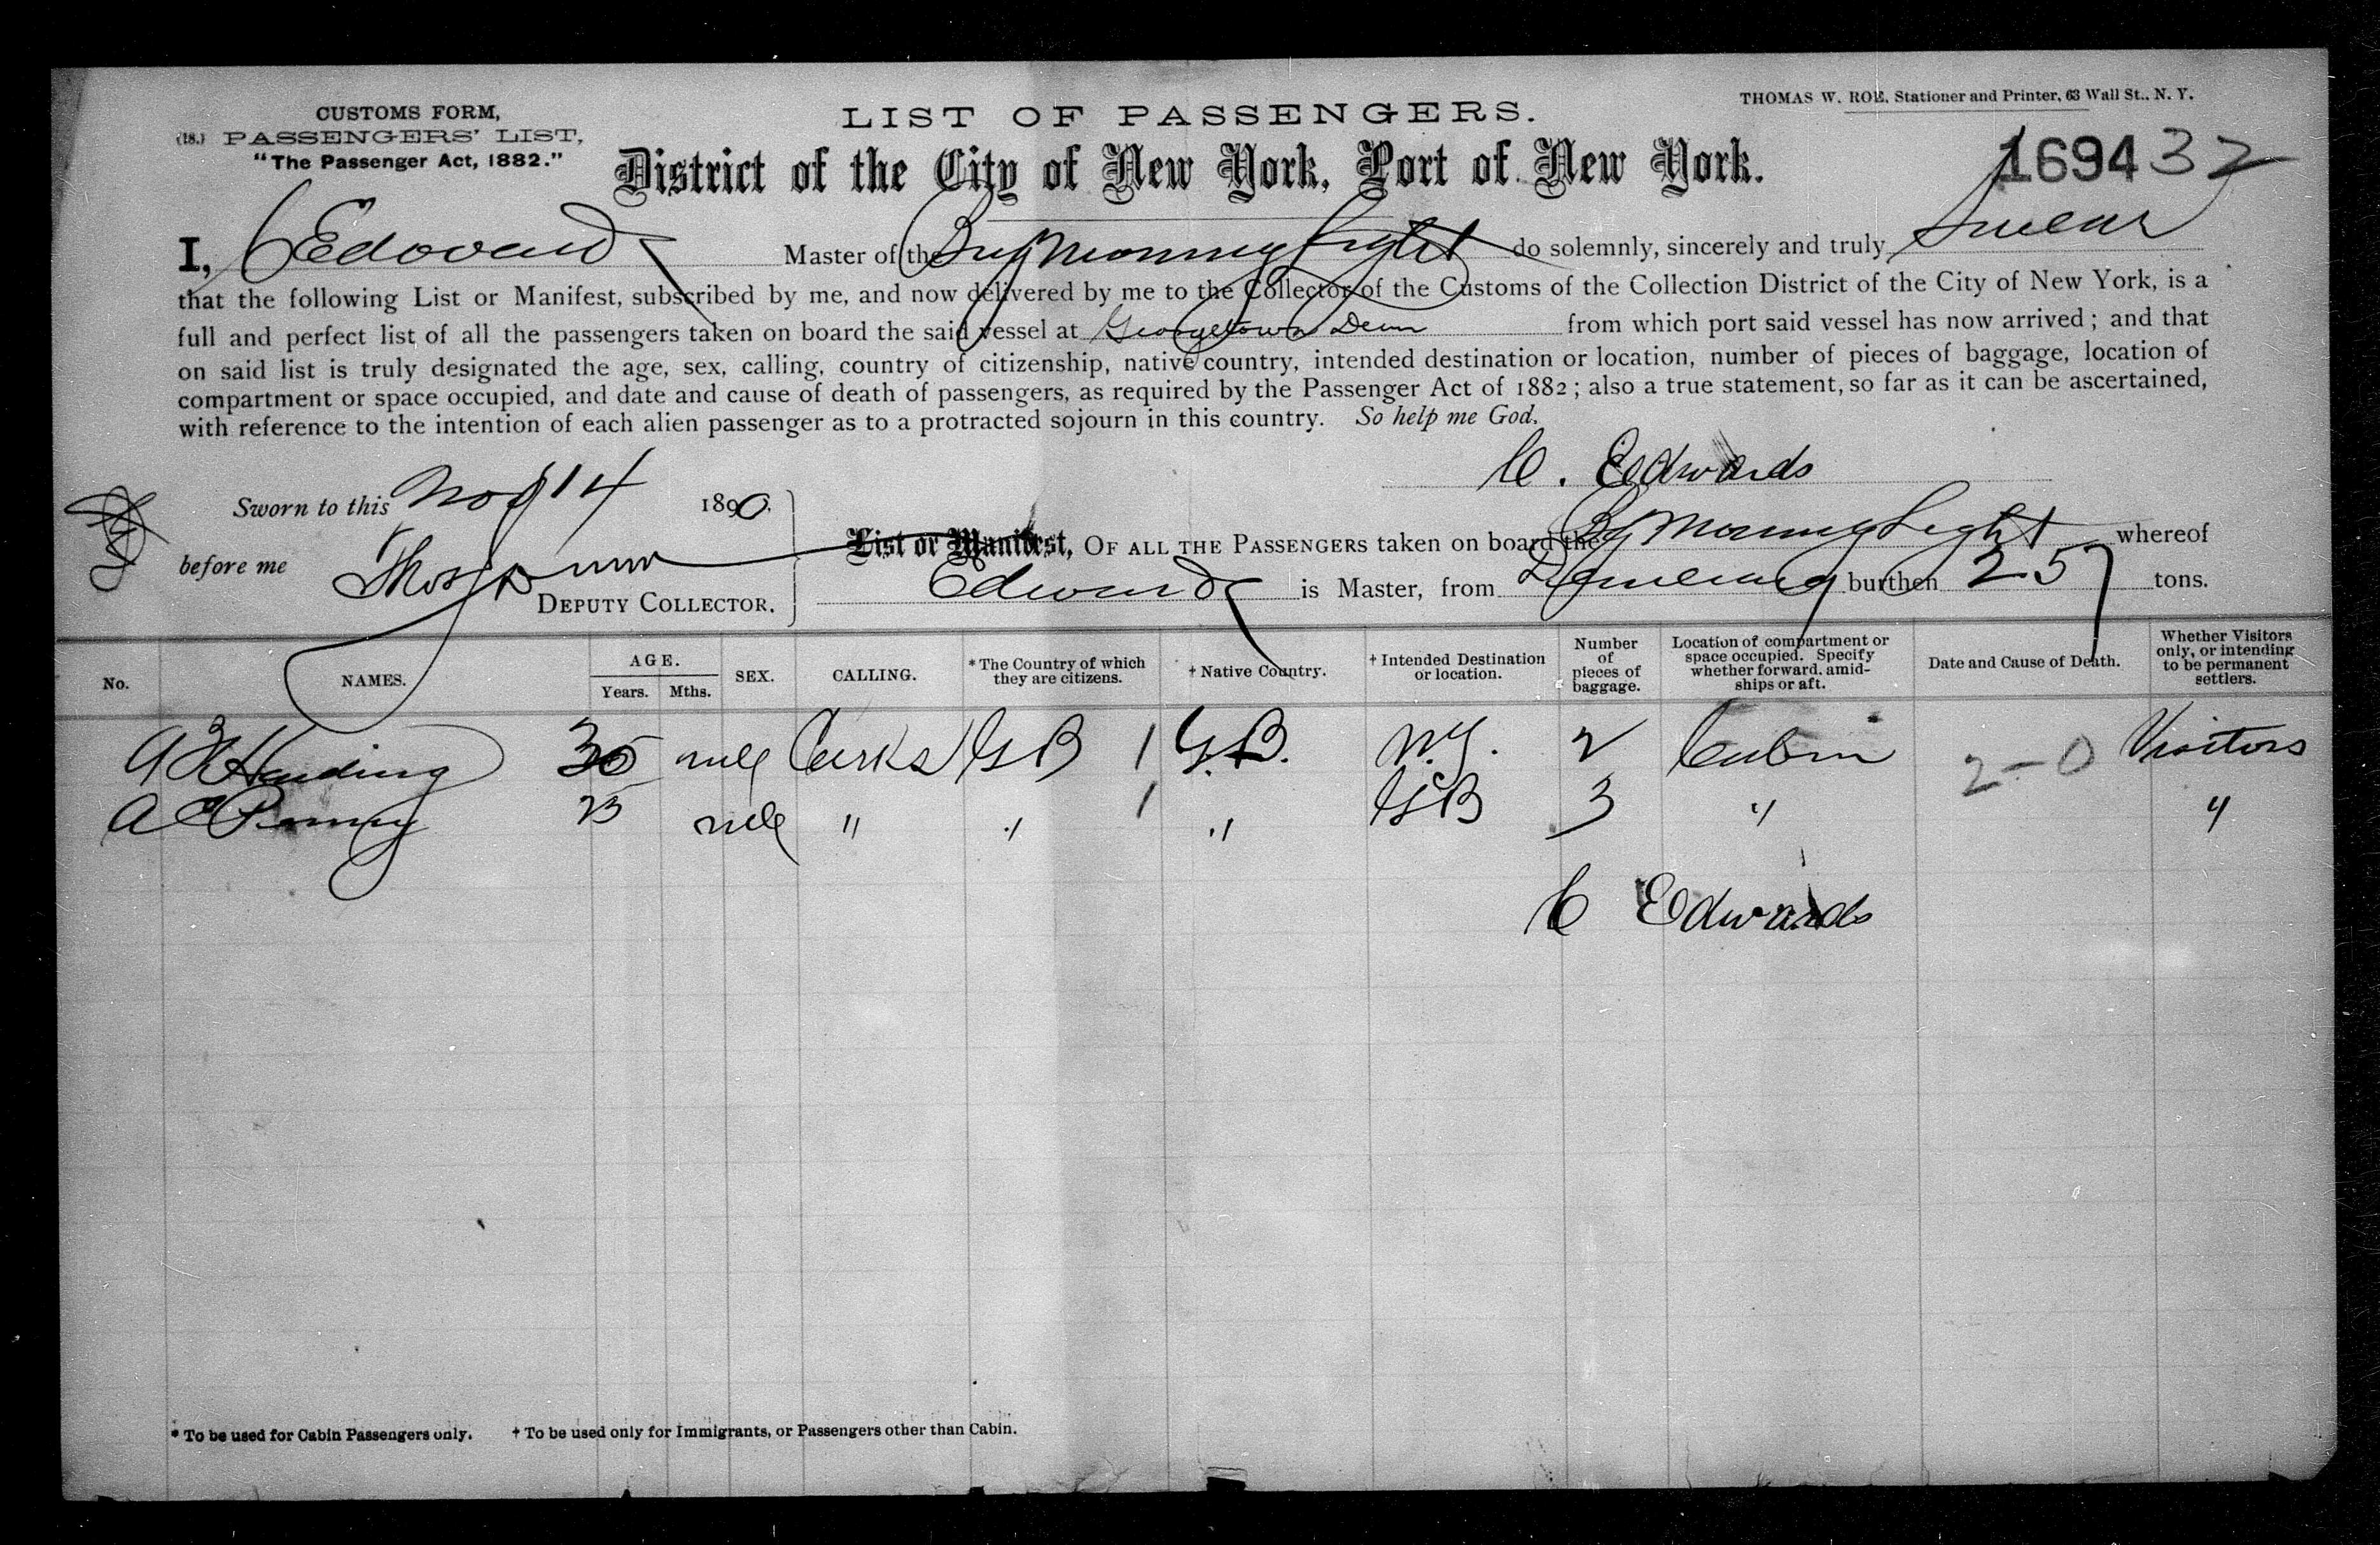 CUSTOMS FORM,
(18.) PASSENGERS' LIST,
"The Passenger Act, 1882."
LIST OF PASSENGERS.
THOMAS W. ROE, Stationer and Printer, 63 Wall St., N. Y.
District of the City of New York, Port of New York.
1694 32
I, C Edwards Master of the Brig Morning Light do solemnly, sincerely and truly Swear
that the following List or Manifest, subscribed by me, and now delivered by me to the Collector of the Customs of the Collection District of the City of New York, is a
full and perfect list of all the passengers taken on board the said vessel at Georgetown Dem from which port said vessel has now arrived; and that
on said list is truly designated the age, sex, calling, country of citizenship, native country, intended destination or location, number of pieces of baggage, location of
compartment or space occupied, and date and cause of death of passengers, as required by the Passenger Act of 1882; also a true statement, so far as it can be ascertained,
with reference to the intention of each alien passenger as to a protracted sojourn in this country. So help me God.
C. Edwards
Sworn to this Nov 14 1890.
before me Thos
DEPUTY COLLECTOR.
List or Manifest, OF ALL THE PASSENGERS taken on board the Bg Morning Light whereof
Edwards is Master, from Demerara burthen 257 tons.
No. NAMES. AGE. Years. Mths. SEX. CALLING. * The Country of which they are citizens. † Native Country. † Intended Destination or location. Number of pieces of baggage. Location of compartment or space occupied. Specify whether forward, amidships or aft. Date and Cause of Death. Whether Visitors only, or intending to be permanent settlers.
Harding male Clerks GB 1 G.B. N.Y. 2 Cabin 2-0 Visitors
A 25 male " " 1 " GB 3 " "
C Edwards
* To be used for Cabin Passengers only. † To be used only for Immigrants, or Passengers other than Cabin.